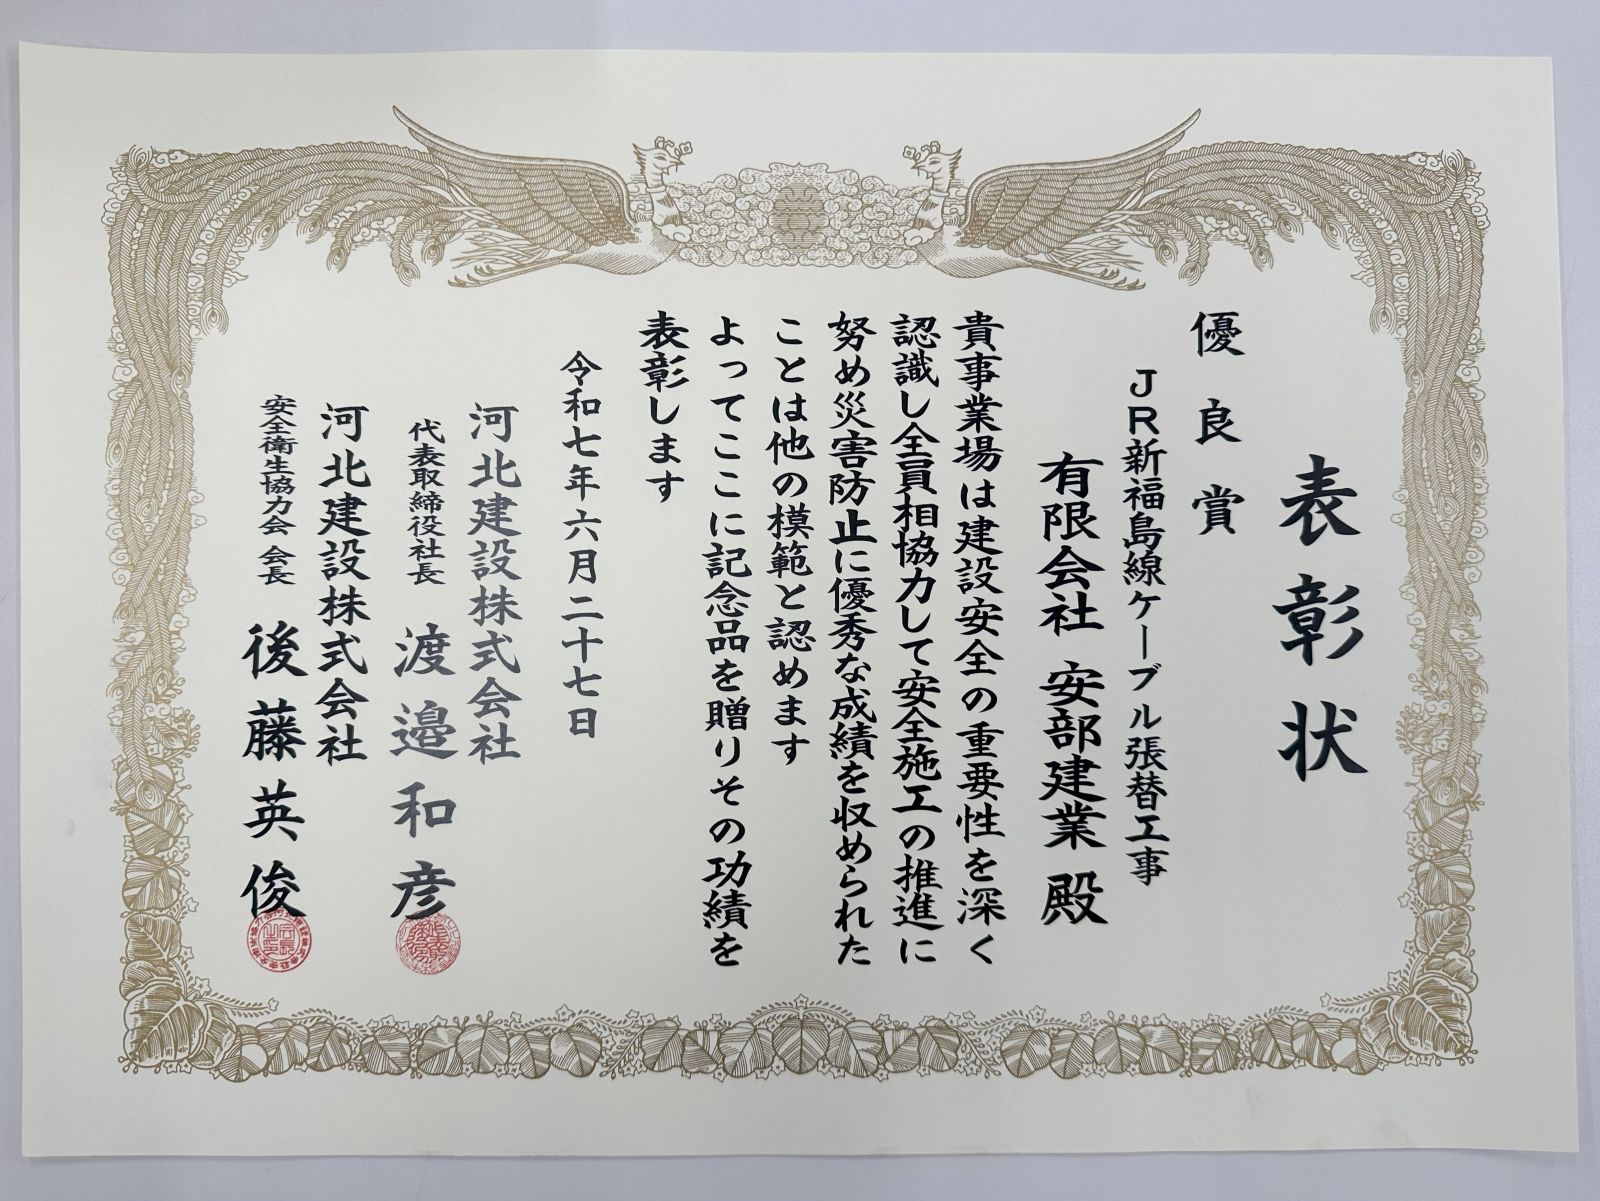 表彰状
優良賞
JR新福島線ケーブル張替工事
有限会社 安部建業 殿
貴事業場は建設安全の重要性を深く
認識し全員相協力して安全施工の推進に
努め災害防止に優秀な成績を収められた
ことは他の模範と認めます
よってここに記念品を贈りその功績を
表彰します
令和七年六月二十七日
河北建設株式会社
代表取締役社長 渡邉和彦
河北建設株式会社
安全衛生協力会 会長 後藤英俊